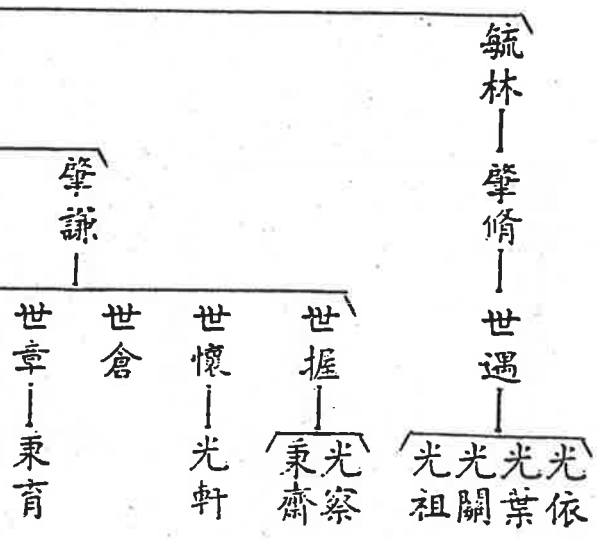 毓林
肇脩
世遇
光依
光葉
光關
光祖
肇謙
世握
光察
秉齋
世懷
光軒
世倉
世章
秉育